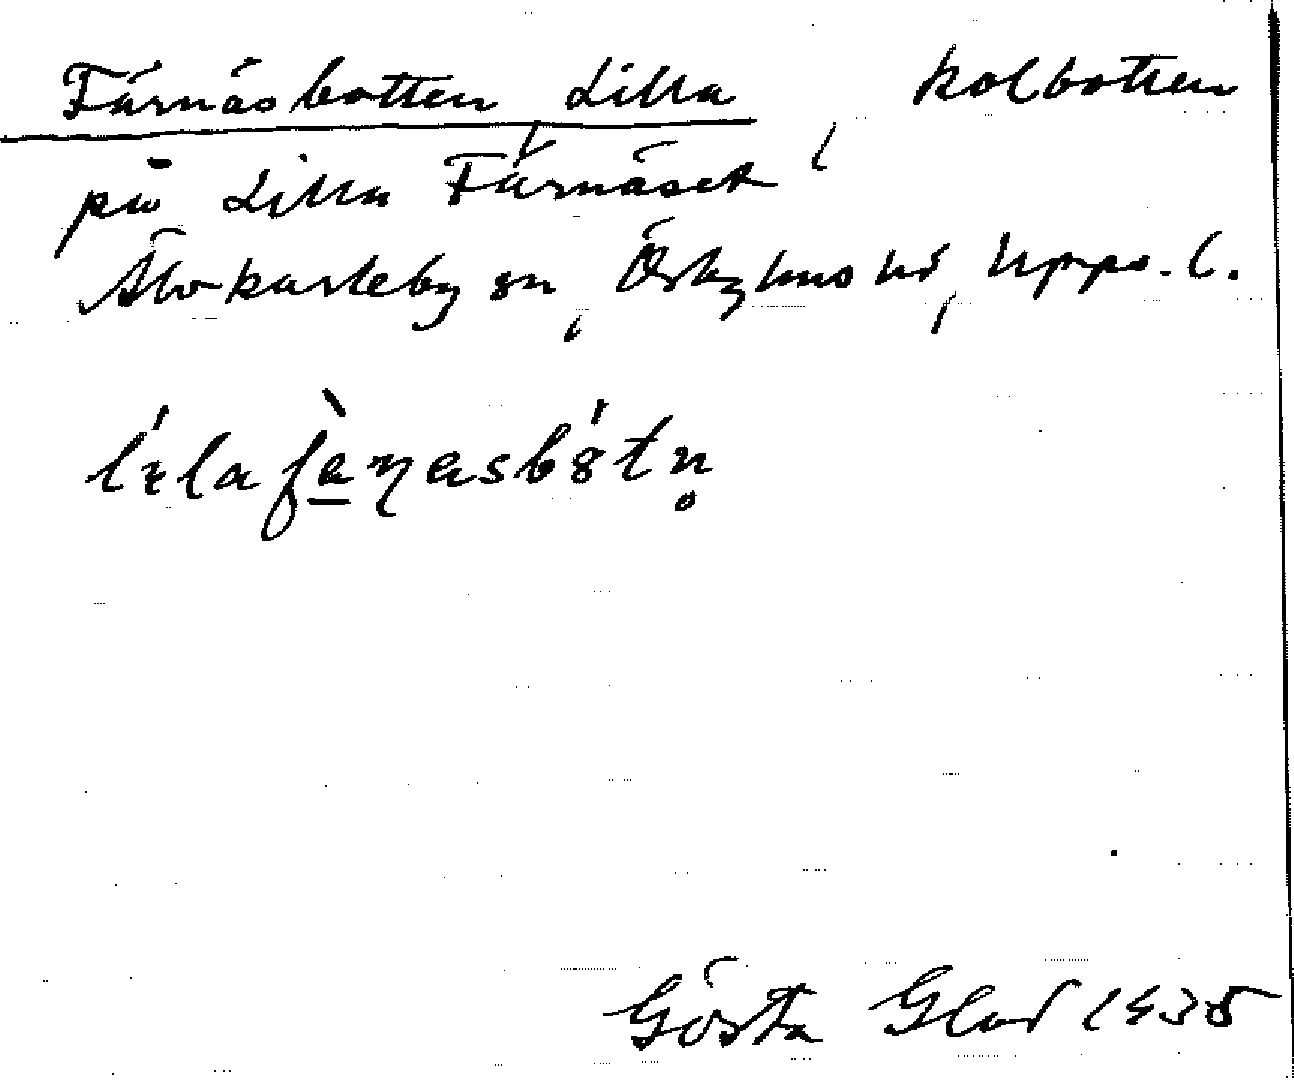 Färnäsbotten, Lilla kolbotten,
på Lilla Färnäset
Älvkarleby sn, Örbyhus hd, Upps. l.
Gösta Glad 1935